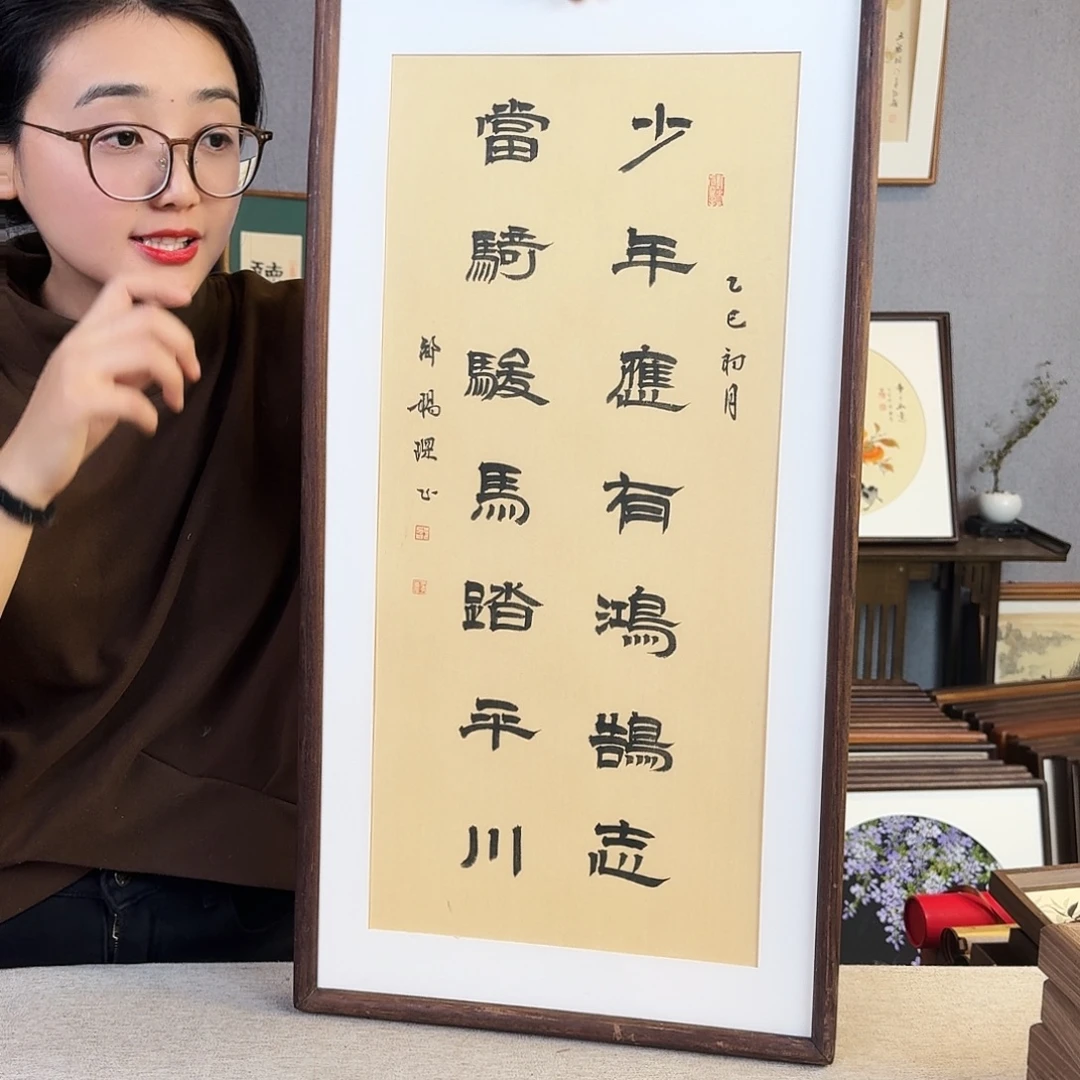 乙巳初月
少年應有鴻鵠志
當騎駿馬踏平川